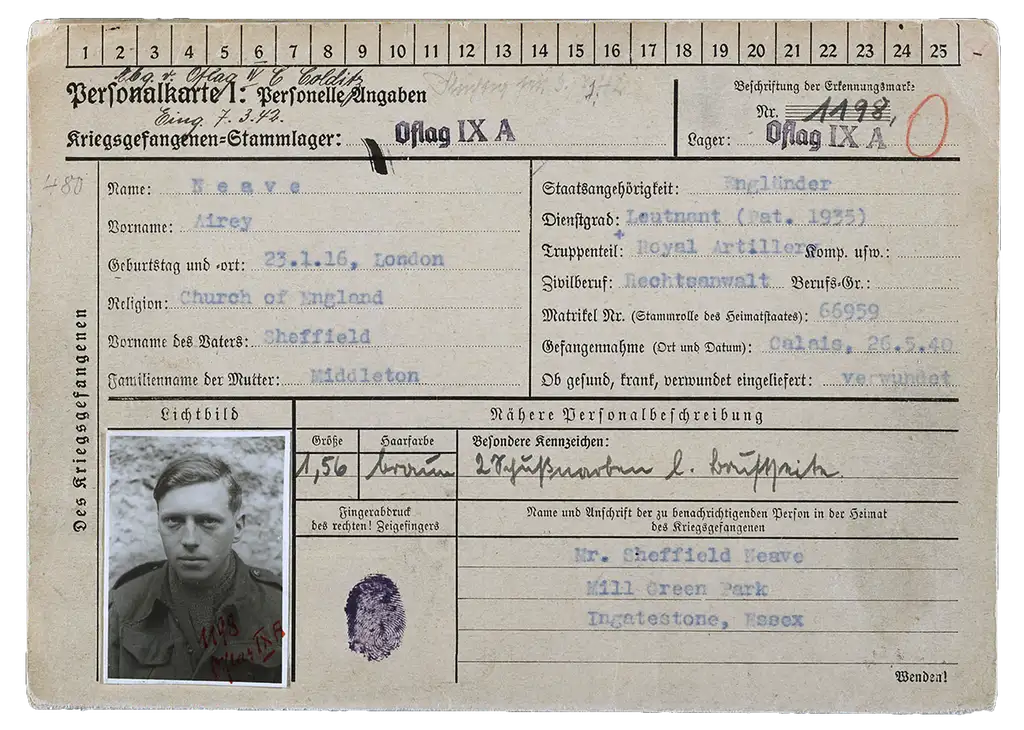 1 2 3 4 5 6 7 8 9 10 11 12 13 14 15 16 17 18 19 20 21 22 23 24 25
Abg. v. Oflag IV C Colditz
Personalkarte I: Personelle Angaben
Eing. 7.3.42.
Kriegsgefangenen-Stammlager: Oflag IX A
Beschriftung der Erkennungsmarke
Nr. 1198,
Lager: Oflag IX A
480
Des Kriegsgefangenen
Name: Neave
Vorname: Airey
Geburtstag und -ort: 23.1.16, London
Religion: Church of England
Vorname des Vaters: Sheffield
Familienname der Mutter: Middleton
Staatsangehörigkeit: Engländer
Dienstgrad: Leutnant (Pat. 1935)
Truppenteil: Royal Artillery Komp. usw.:
Zivilberuf: Rechtsanwalt Berufs-Gr.:
Matrikel Nr. (Stammrolle des Heimatstaates): 66959
Gefangennahme (Ort und Datum): Calais, 26.5.40
Ob gesund, krank, verwundet eingeliefert: verwundet
Lichtbild
Nähere Personalbeschreibung
Größe Haarfarbe Besondere Kennzeichen:
1,56 braun 2 Schußnarben l. Brustseite.
Fingerabdruck
des rechten! Zeigefingers
Name und Anschrift der zu benachrichtigenden Person in der Heimat
des Kriegsgefangenen
Mr. Sheffield Neave
Mill Green Park
Ingatestone, Essex
1198
Oflag IX A
Wenden!